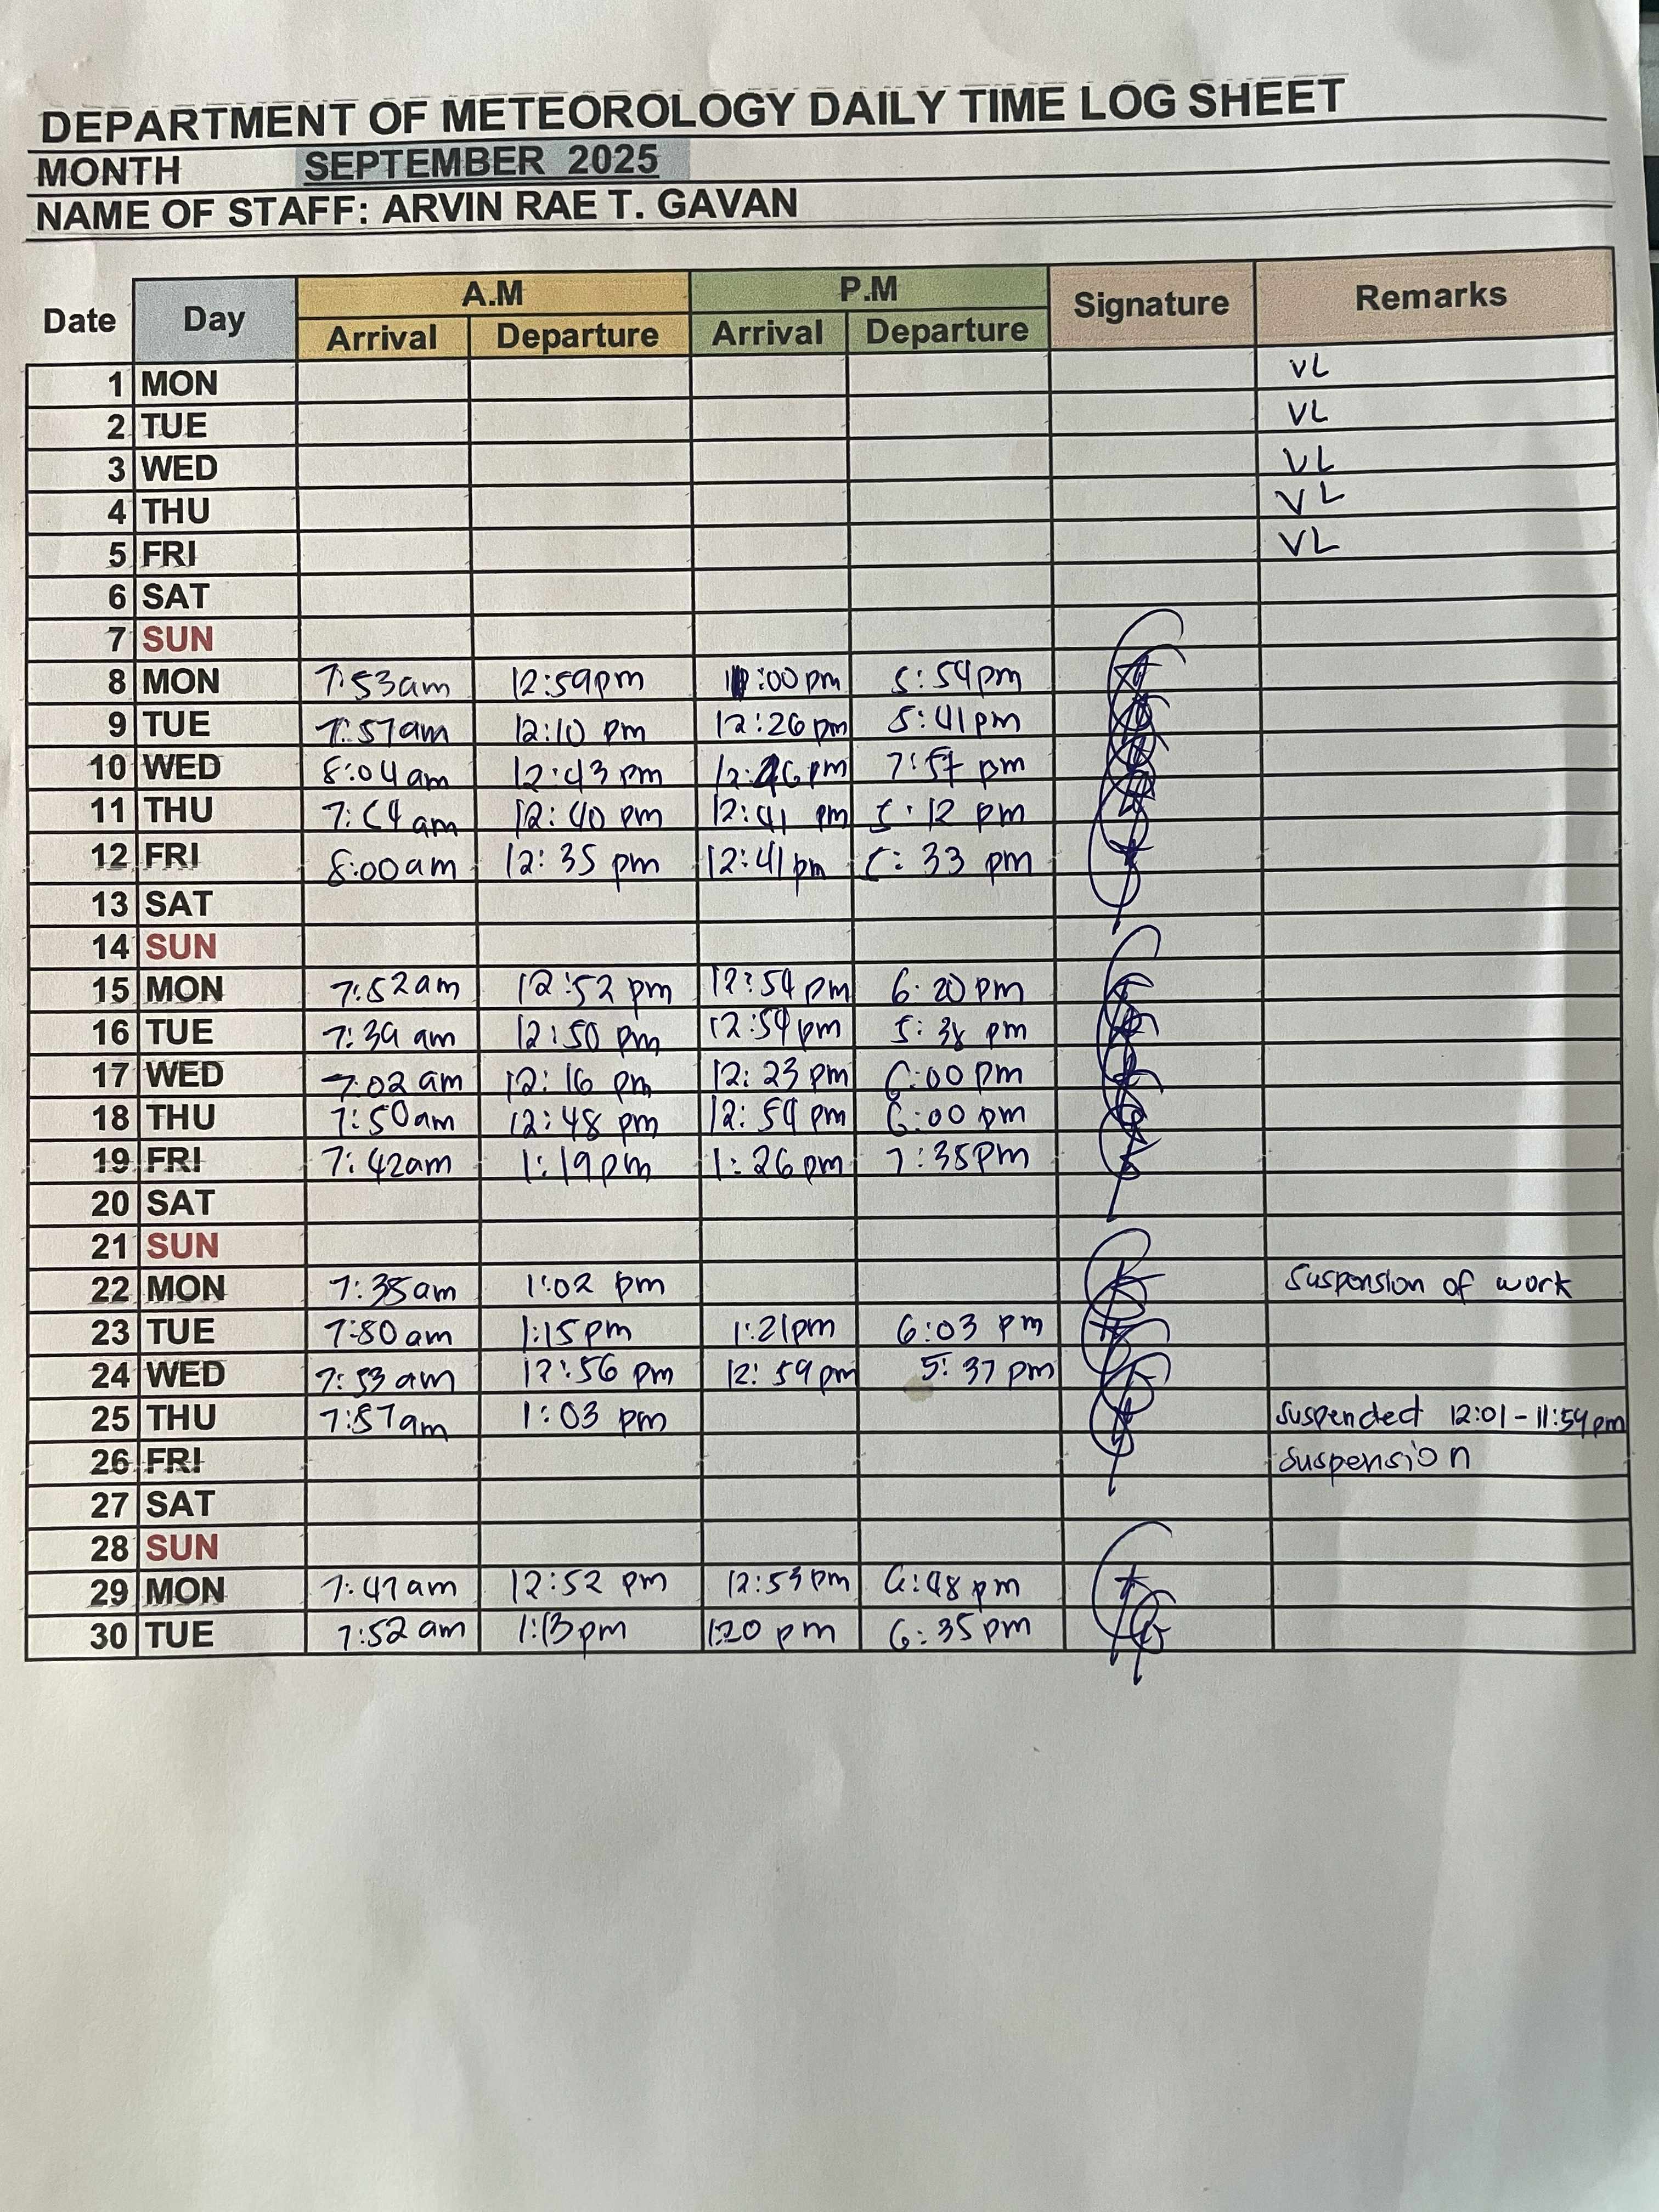 DEPARTMENT OF METEOROLOGY DAILY TIME LOG SHEET
MONTH SEPTEMBER 2025
NAME OF STAFF: ARVIN RAE T. GAVAN
Date Day A.M P.M Signature Remarks
Arrival Departure Arrival Departure
1 MON VL
2 TUE VL
3 WED VL
4 THU VL
5 FRI VL
6 SAT
7 SUN
8 MON 7:53am 12:59pm 1:00pm 5:54pm
9 TUE 7:57am 12:10 pm 12:26pm 5:41pm
10 WED 8:04am 12:43pm 7:57 pm
11 THU 12:40 pm 12:41 pm 5:12 pm
12 FRI 8:00am 12:35 pm 12:41pm
13 SAT
14 SUN
15 MON 7:52am 12:52 pm 12:54pm 6:20pm
16 TUE 7:39 am 12:50 pm 12:59pm 5:38 pm
17 WED 7:02 am 12:16 pm 12:23pm 6:00pm
18 THU 7:50am 12:48 pm 12:59 pm 6:00 pm
19 FRI 7:42am 1:19pm 1:26pm 7:35pm
20 SAT
21 SUN
22 MON 7:38am 1:02 pm Suspension of work
23 TUE 7:80am 1:15pm 1:21pm 6:03 pm
24 WED 7:53am 12:56 pm 12:59pm 5:37pm
25 THU 7:57am 1:03 pm Suspended 12:01-11:59pm
26 FRI Suspension
27 SAT
28 SUN
29 MON 7:47am 12:52 pm 12:53pm 6:48pm
30 TUE 7:52am 1:13pm 1:20 pm 6:35pm